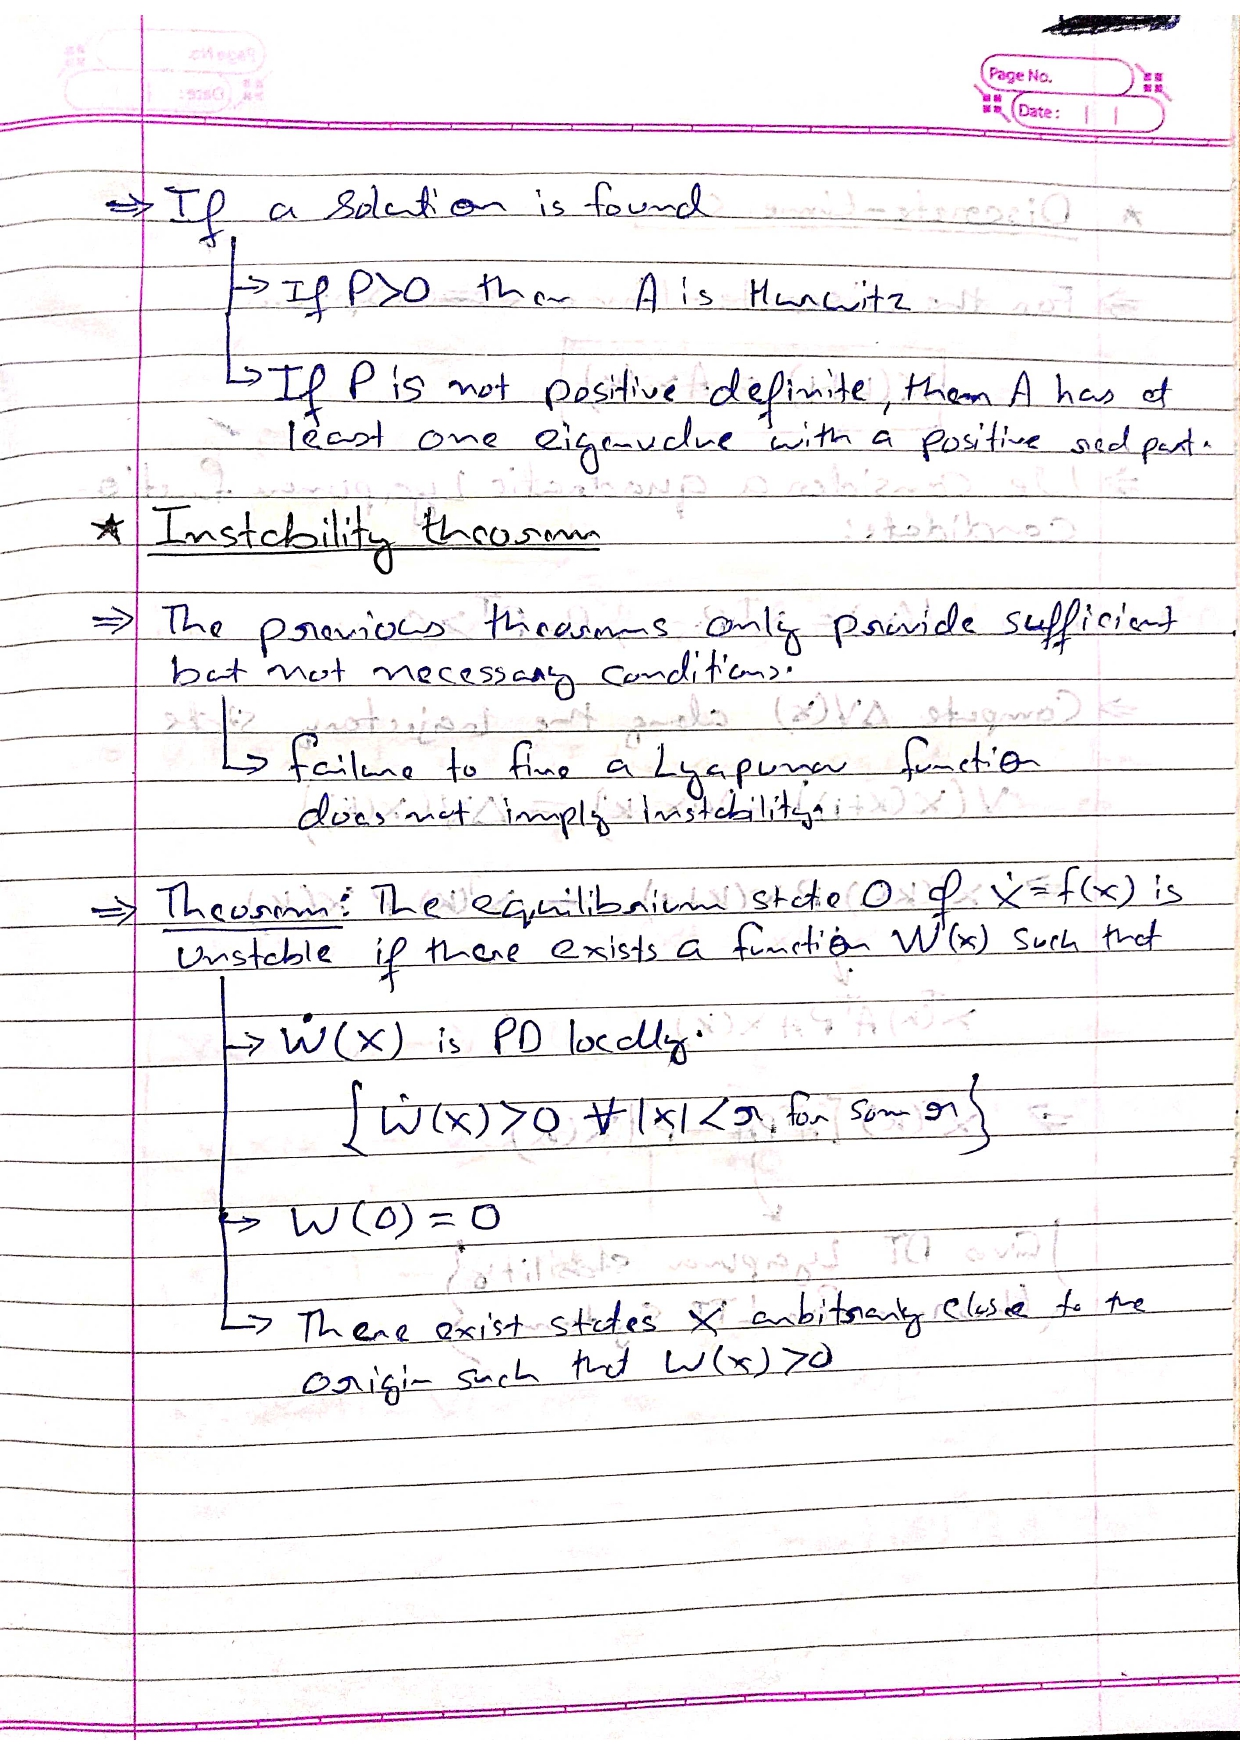 Page No.
Date:
⇒ If a solution is found
↳ If P>0 then A is Hurwitz
↳ If P is not positive definite, then A has at
least one eigenvalue with a positive real part.
★ Instability theorem
⇒ The previous theorems only provide sufficient
but not necessary conditions.
↳ failure to find a Lyapunov function
does not imply instability.
⇒ Theorem: The equilibrium state 0 of ẋ=f(x) is
unstable if there exists a function W(x) such that
→ Ẇ(x) is PD locally.
{Ẇ(x)>0 ∀ |x|<r, for some r}
→ W(0)=0
↳ There exist states x arbitrary close to the
origin such that W(x)>0